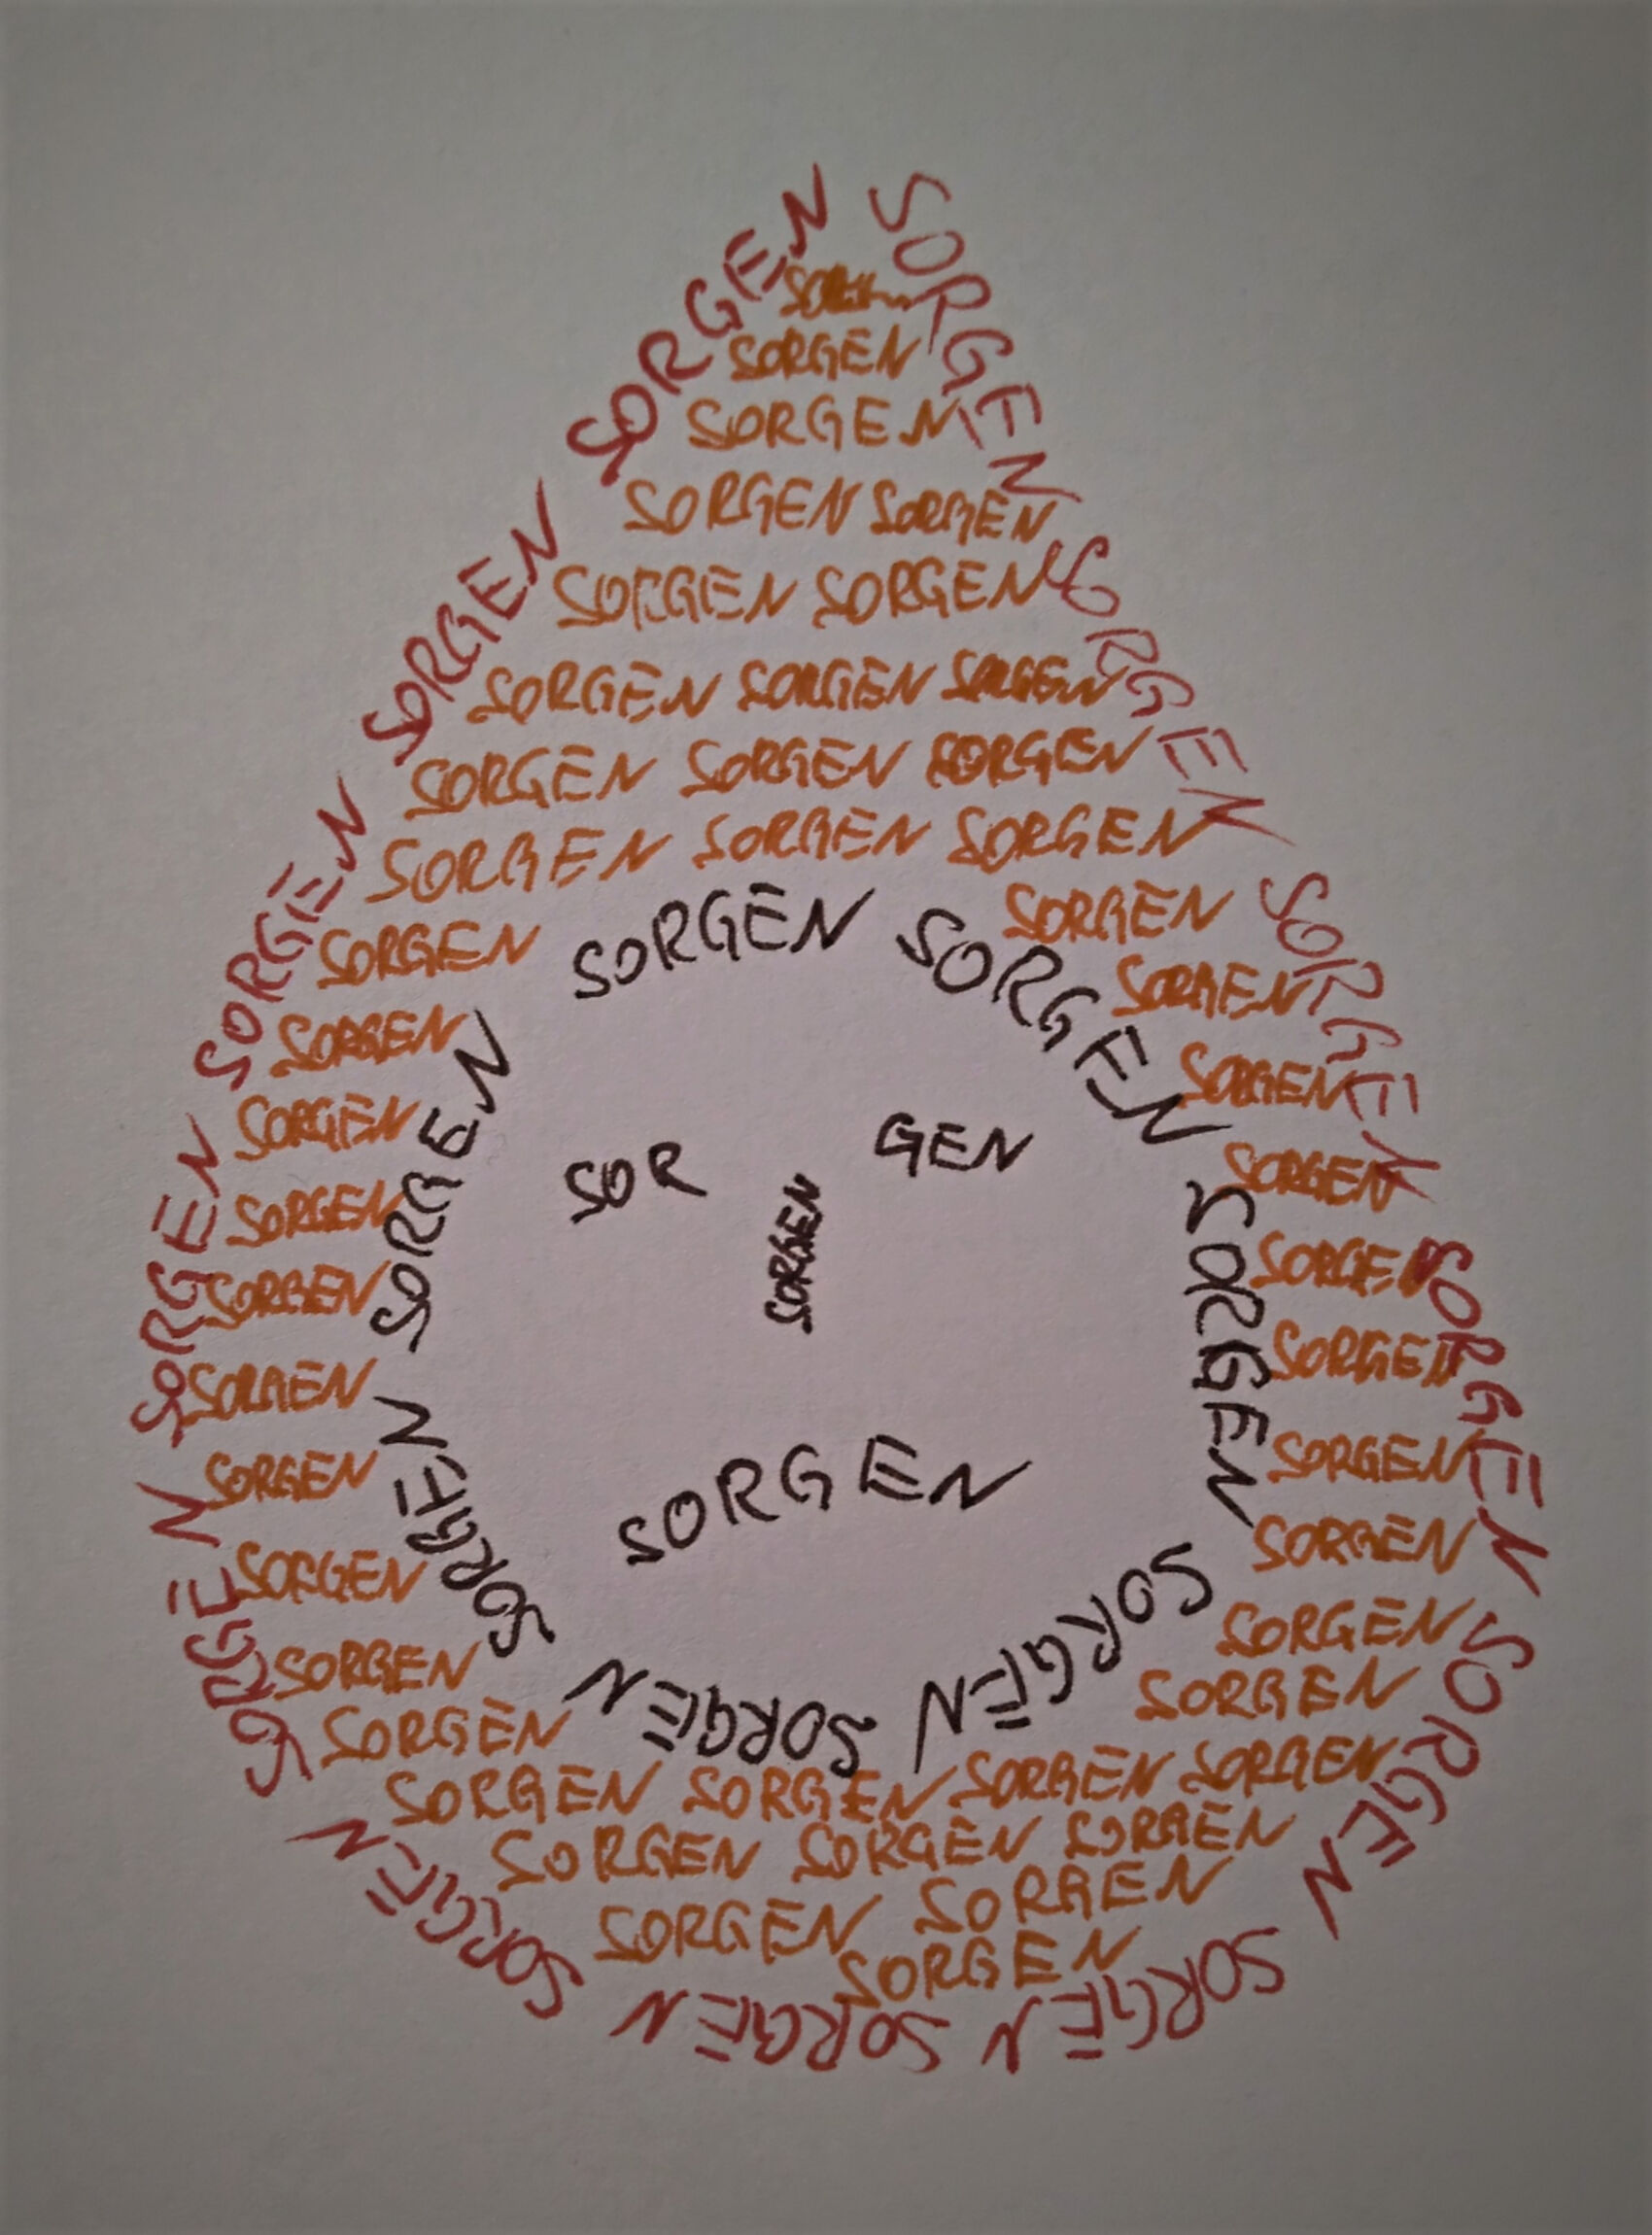 SORGEN
SORGEN
SORGEN
SORGEN
SORGEN
SORGEN
SORGEN
SORGEN
SORGEN
SORGEN
SORGEN
SORGEN
SORGEN
SORGEN
SORGEN
SORGEN SORGEN
SORGEN SORGEN
SORGEN SORGEN SORGEN
SORGEN SORGEN SORGEN
SORGEN SORGEN SORGEN
SORGEN SORGEN
SORGEN SORGEN
SORGEN SORGEN
SORGEN SORGEN
SORGEN SORGEN
SORGEN SORGEN
SORGEN SORGEN
SORGEN SORGEN
SORGEN SORGEN
SORGEN SORGEN
SORGEN SORGEN SORGEN SORGEN
SORGEN SORGEN SORGEN
SORGEN SORGEN
SORGEN
SORGEN
SORGEN
SORGEN
SORGEN
SORGEN
SORGEN
SORGEN
SOR GEN
SORGEN
SORGEN